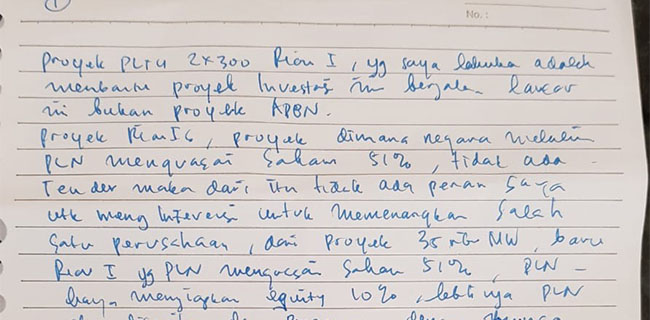 1
No.:
Proyek PLTU 2x300 Riau I, yg saya lakukan adalah
membantu proyek Investasi ini berjalan lancar
ini bukan proyek APBN.
Proyek Riau I, proyek dimana negara melalui
PLN menguasai Saham 51%, tidak ada
Tender maka dari itu tidak ada peran saya
utk mengIntervensi untuk memenangkan Salah
Satu perusahaan, dari proyek 35 ribu MW, baru
Riau I yg PLN menguasai Saham 51%, PLN -
hanya menyiapkan equity 10%, lebihnya PLN